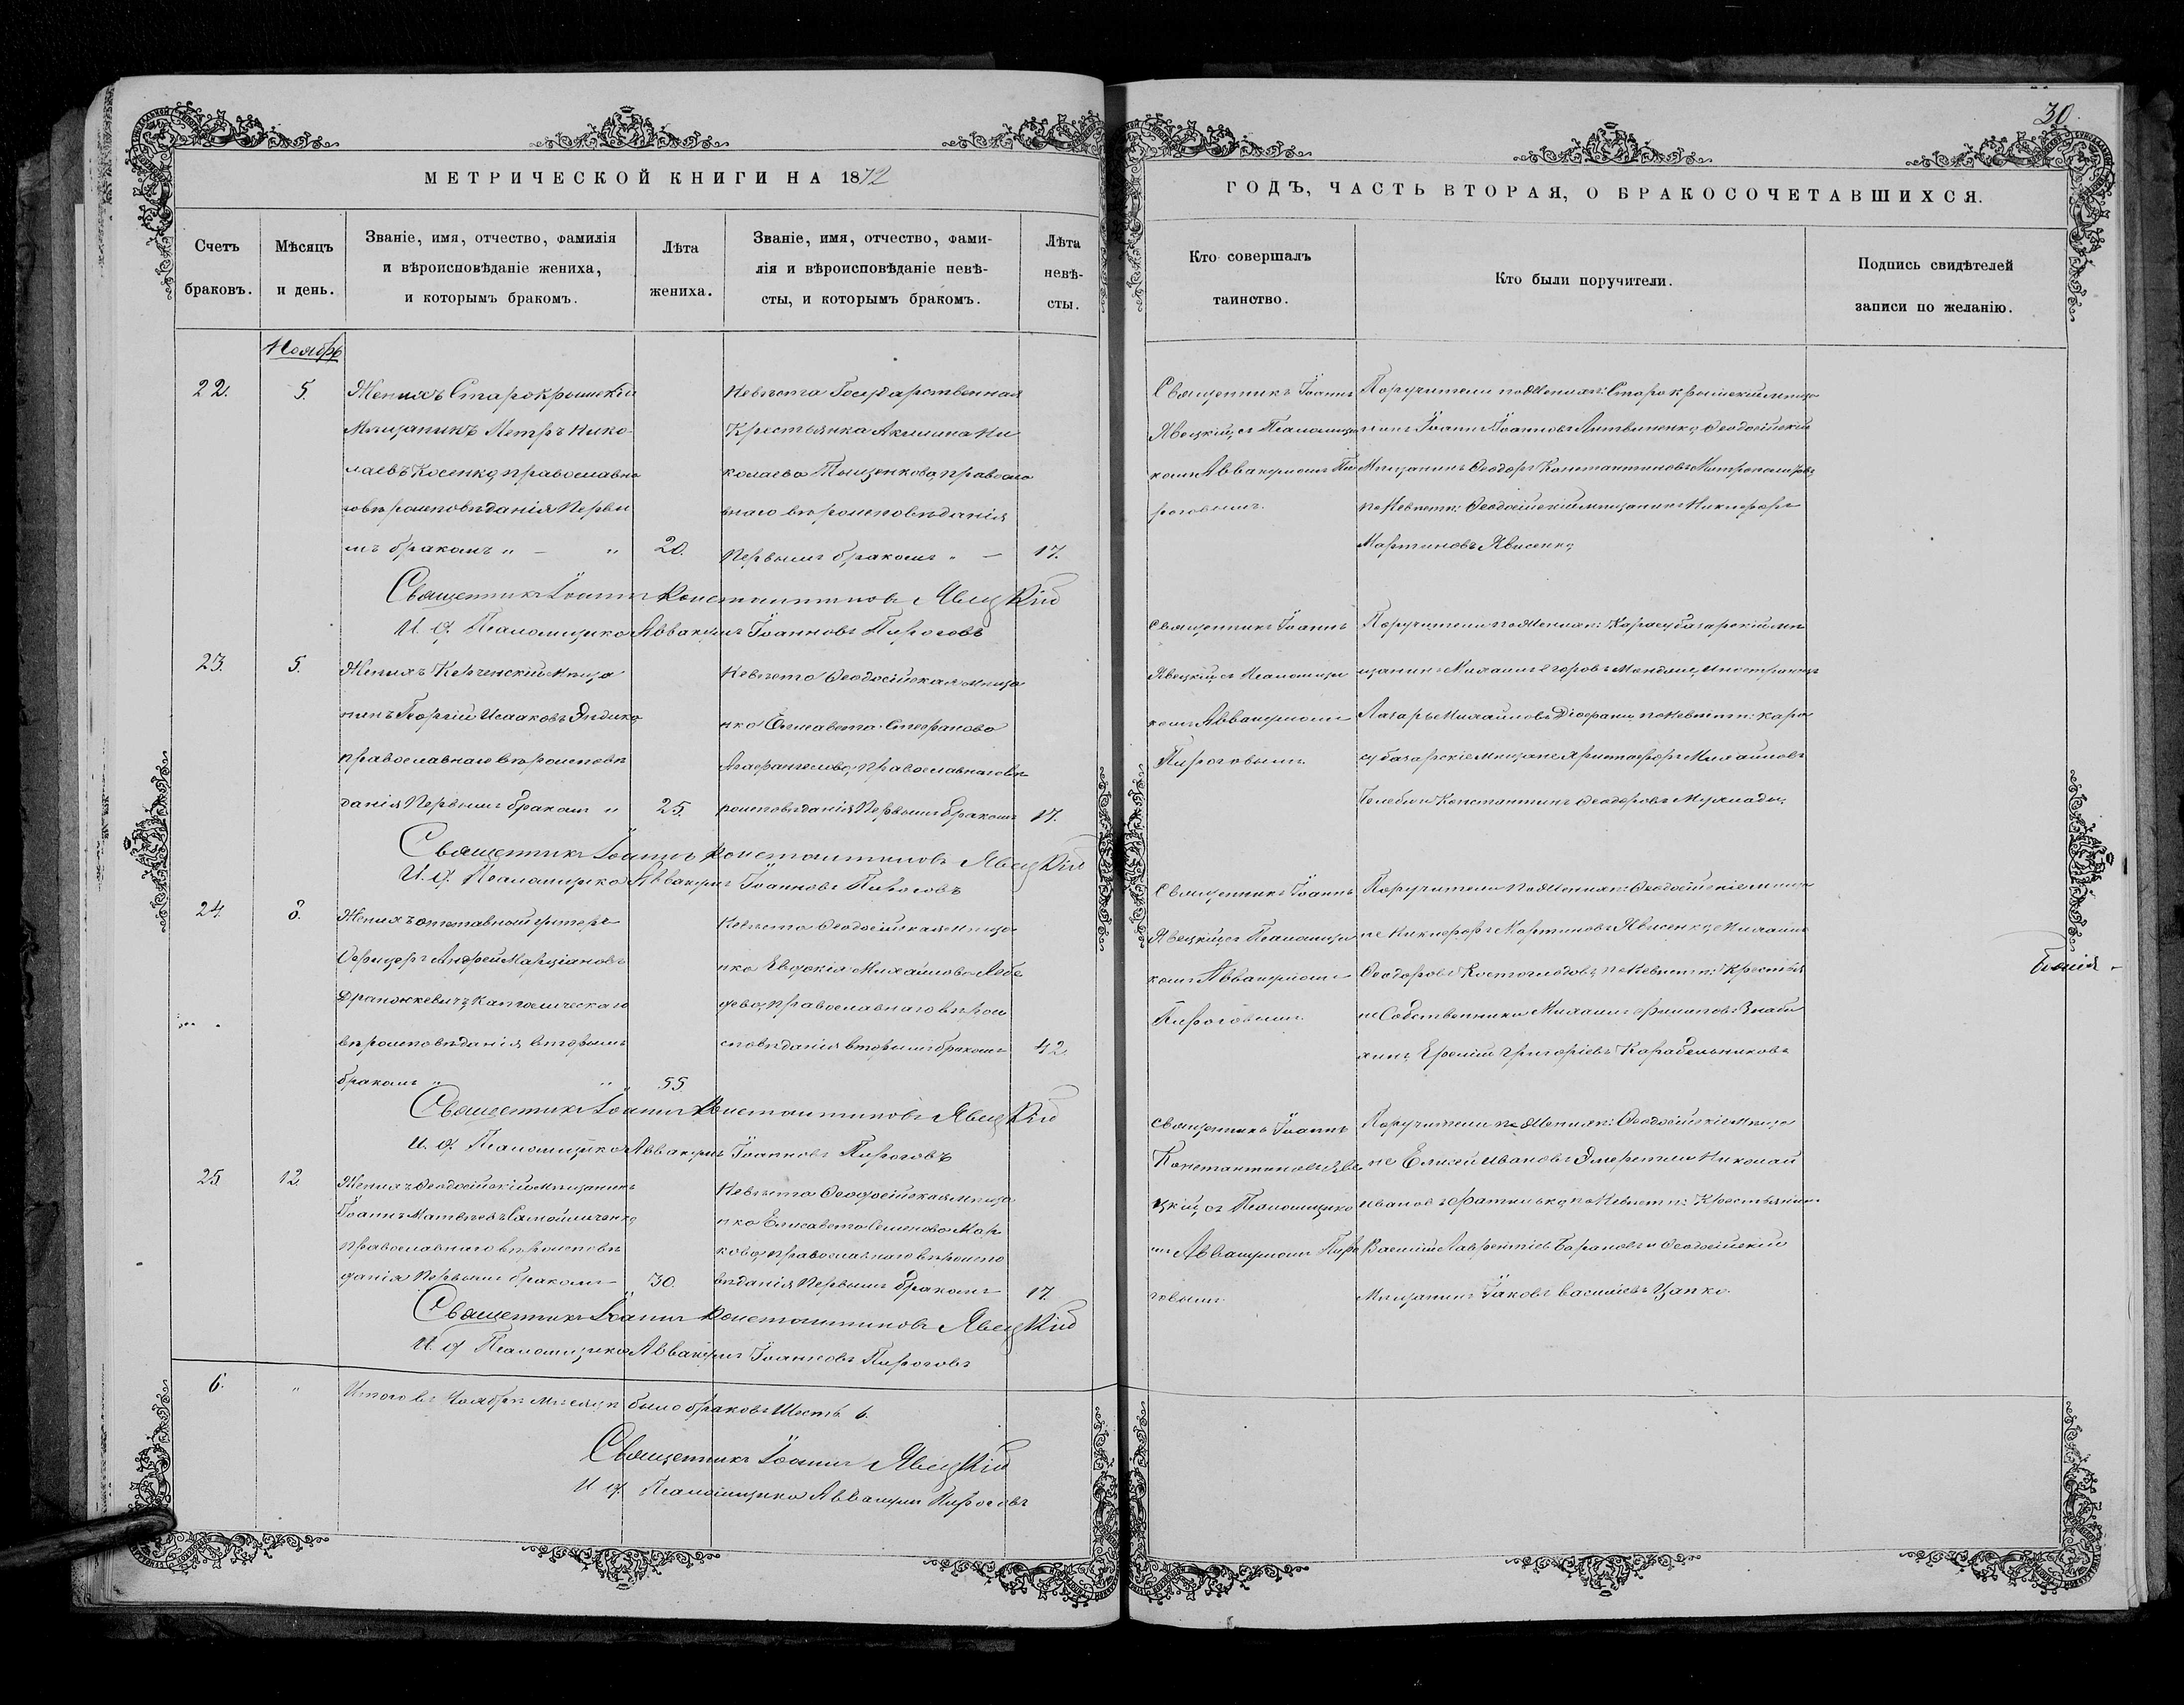 30.
МЕТРИЧЕСКОЙ КНИГИ НА 1872
ГОДЪ, ЧАСТЬ ВТОРАЯ, О БРАКОСОЧЕТАВШИХСЯ.
Счетъ браковъ.
Мѣсяцъ и день.
Званіе, имя, отчество, фамилія
и вѣроисповѣданіе жениха,
и которымъ бракомъ.
Лѣта
жениха.
Званіе, имя, отчество, фами-
лія и вѣроисповѣданіе невѣ-
сты, и которымъ бракомъ.
Лѣта
невѣ-
сты.
Кто совершалъ
таинство.
Кто были поручители.
Подпись свидѣтелей
записи по желанію.
Ноябрь
22.
5.
Женихъ Старокрымскій
Мѣщанинъ Петръ Нико
лаевъ Косенко, православна
го вѣроисповѣданія Первы
мъ бракомъ " — "
20.
Невѣста Государственная
Крестьянка Акилина Ни
колаева Тыщенкова, правосла
внаго вѣроисповѣданія
Первымъ бракомъ " —
17.
Священникъ Іоаннъ
Явецкій, съ Псаломщи
комъ Аввакумомъ Пи
роговымъ.
Поручители по Женихѣ: Старокрымскій мѣща
нинъ Іоаннъ Іоанновъ Литвиненко, Ѳеодосійскій
Мѣщанинъ Ѳеодоръ Константиновъ
по Невѣстѣ: Ѳеодосійскій мѣщанинъ Никифоръ
Мартиновъ Явисенко,
Священникъ Іоаннъ Константиновъ Явецкій
И. д. Псаломщика Аввакумъ Іоанновъ Пироговъ
23.
5.
Женихъ Керченскій мѣща
нинъ Георгій Исааковъ
православнаго вѣроисповѣ
данія Первымъ бракомъ "
25.
Невѣста Ѳеодосійская мѣща
нка Елисавета Стефанова
православнаго вѣ
роисповѣданія Первымъ бракомъ
17.
Священникъ Іоаннъ
Явецкій, съ Псаломщи
комъ Аввакумомъ
Пироговымъ.
Поручители по Женихѣ: Карасубазарскій мѣ
щанинъ Михаилъ Егоровъ иностранецъ
Лазарь Михайловъ по Невѣстѣ: Кара
субазарскіе мѣщане Христофоръ Михайловъ
Челеби и Константинъ Ѳеодоровъ
Священникъ Іоаннъ Константиновъ Явецкій
И. д. Псаломщика Аввакумъ Іоанновъ Пироговъ
24.
8.
Женихъ отставной унтеръ
Офицеръ Андрей
католическаго
вѣроисповѣданія вторымъ
бракомъ " "
55
Невѣста Ѳеодосійская мѣща
нка Евдокія Михайлова Лебе
дева, православнаго вѣрои
сповѣданія вторымъ бракомъ
42.
Священникъ Іоаннъ
Явецкій съ Псаломщи
комъ Аввакумомъ
Пироговымъ.
Поручители по Женихѣ: Ѳеодосійскіе мѣща
не Никифоръ Мартиновъ Явисенко, Михаилъ
Ѳеодоровъ Костоглодовъ, по Невѣстѣ: Крестья
не Собственники Михаилъ Филиповъ
Григоріевъ Карабельниковъ
Священникъ Іоаннъ Константиновъ Явецкій
И. д. Псаломщика Аввакумъ Іоанновъ Пироговъ
25.
12.
Женихъ Ѳеодосійскій мѣщанинъ
Іоаннъ Матвѣевъ Самойличенко,
православнаго вѣроисповѣ
данія Первымъ бракомъ
30.
Невѣста Ѳеодосійская мѣща
нка Елисавета Семенова Мар
кова, православнаго вѣроиспо
вѣданія Первымъ бракомъ
17.
Священникъ Іоаннъ
Константиновъ Яве
цкій, съ Псаломщико
мъ Аввакумомъ Пиро
говымъ.
Поручители по Женихѣ: Ѳеодосійскіе мѣща
не Елисей Ивановъ Николай
Ивановъ по Невѣстѣ: Крестьянинъ
Василій Лаврентіевъ Барановъ и Ѳеодосійскій
Мѣщанинъ Іаковъ Василіевъ Цапко.
Священникъ Іоаннъ Константиновъ Явецкій
И. д. Псаломщика Аввакумъ Іоанновъ Пироговъ
6.
"
Итого въ Ноябрѣ мѣсяцѣ было браковъ Шесть 6.
Священникъ Іоаннъ Явецкій
И д. Псаломщика Аввакумъ Пироговъ